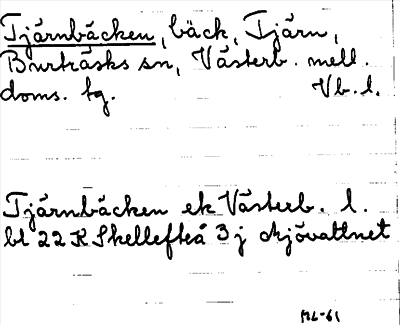 Tjärnbäcken, bäck, Tjärn,
Burträsks sn, Västerb. mell.
doms. tg. Vb. l.
Tjärnbäcken ek Västerb. l.
bl 22 K Skellefteå 3 j Skjövattnet